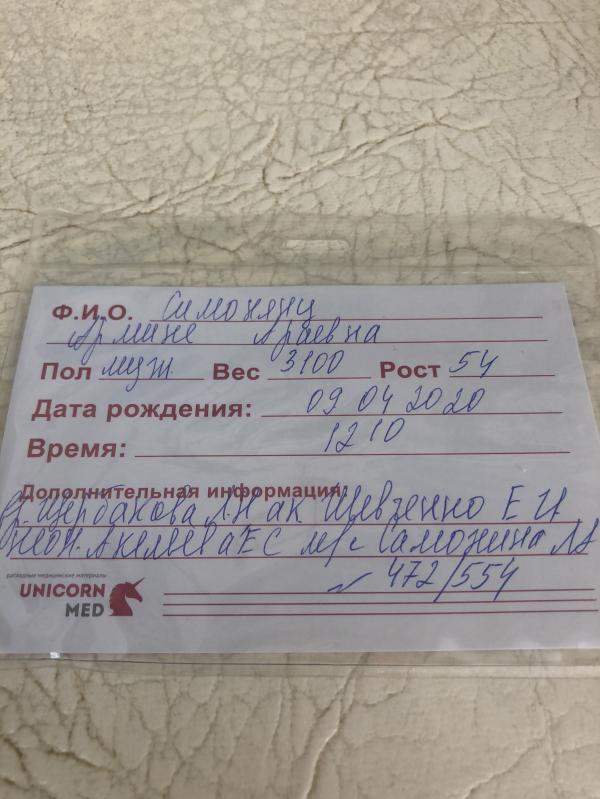 Ф.И.О. Симонянц
Армине Араевна
Пол муж Вес 3100 Рост 54
Дата рождения: 09 04 2020
Время: 12 10
Дополнительная информация:
Щербакова ЛН ак Шевченко Е И
неон. Акельева ЕС м/с Самонина ЛА
472/554
расходные медицинские материалы
UNICORN
MED